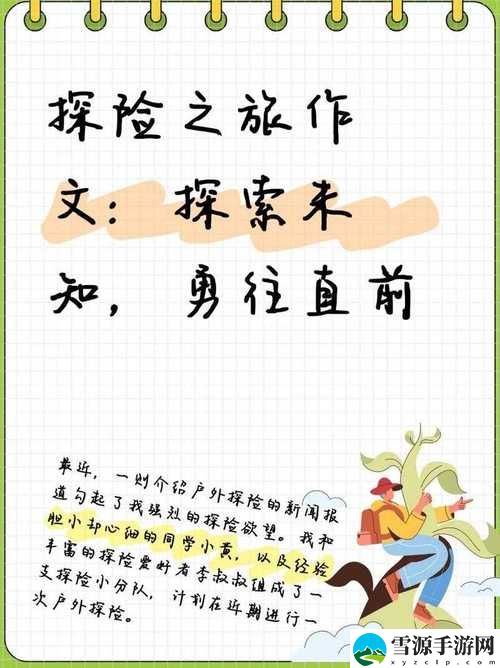 探险之旅作
文：探索未
知，勇往直前
最近，一则介绍户外探险的新闻报
道勾起了我强烈的探险欲望。我和
胆小却心细的同学小黄，以及经验
丰富的探险爱好者李叔叔组成了一
支探险小分队，计划在近期进行一
次户外探险。
雪源手游网
xyzclp.com